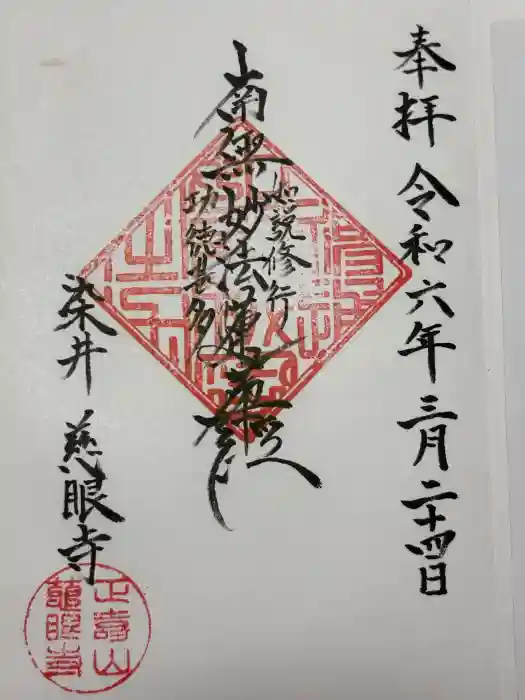 奉拝 令和六年三月二十四日
如説修行
南無妙法蓮華経
功徳甚多
染井 慈眼寺
正寿山
慈眼寺